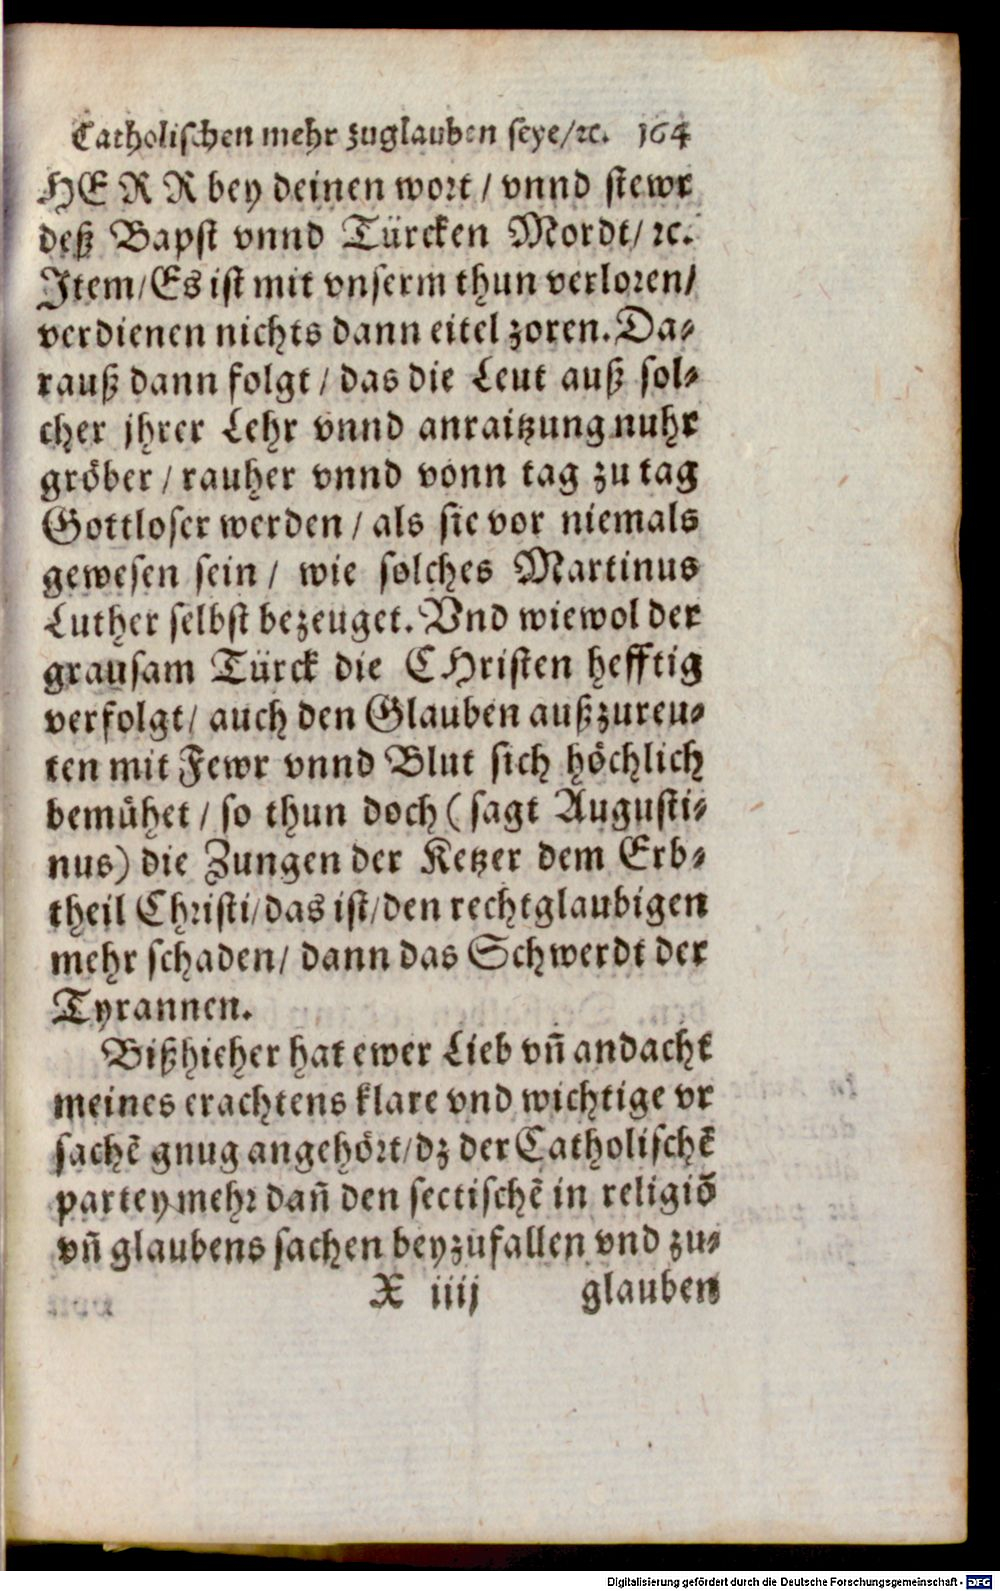 Catholischen mehr zuglauben seye/ꝛc. 164
HERR bey deinen wort / vnnd stewr
deß Bapst vnnd Türcken Mordt/ ꝛc.
Item/Es ist mit vnserm thun verloren/
verdienen nichts dann eitel zoren. Da⸗
rauß dann folgt / das die Leut auß sol⸗
cher jhrer Lehr vnnd anraitzung nuhr
gröber / rauher vnnd vonn tag zu tag
Gottloser werden / als sie vor niemals
gewesen sein / wie solches Martinus
Luther selbst bezeuget. Vnd wiewol der
grausam Türck die CHristen hefftig
verfolgt/ auch den Glauben außzureu⸗
ten mit Fewr vnnd Blut sich höchlich
bemühet / so thun doch ( sagt Augusti⸗
nus) die Zungen der Ketzer dem Erb⸗
theil Christi/das ist/den rechtglaubigen
mehr schaden/ dann das Schwerdt der
Tyrannen.
Bißhieher hat ewer Lieb vñ andacht
meines erachtens klare vnd wichtige vr
sachẽ gnug angehört/dz der Catholischẽ
partey mehr dañ den sectischẽ in religiõ
vñ glaubens sachen beyzufallen vnd zu⸗
X iiij glauben
Digitalisierung gefördert durch die Deutsche Forschungsgemeinschaft - DFG